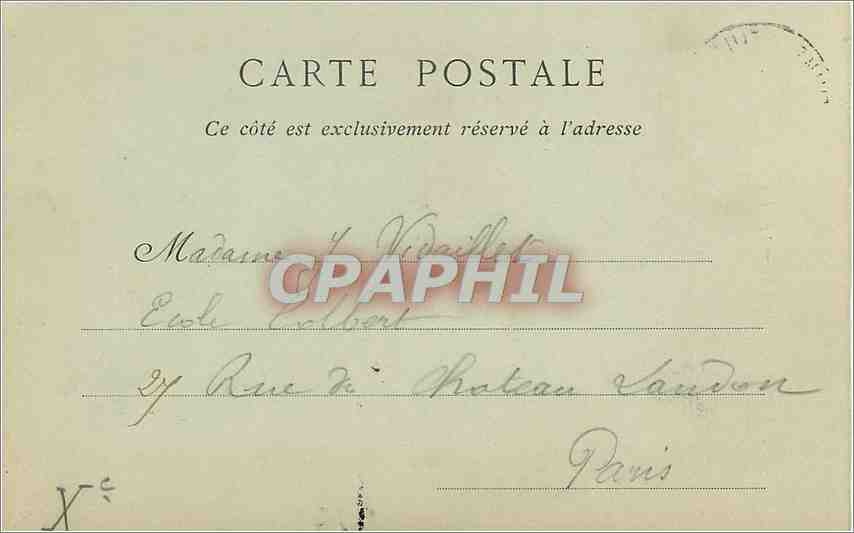 CARTE POSTALE
Ce côté est exclusivement réservé à l'adresse
Madame J Vidaillet
CPAPHIL
Ecole Colbert
27 Rue du Chateau Landon
Paris
Xe